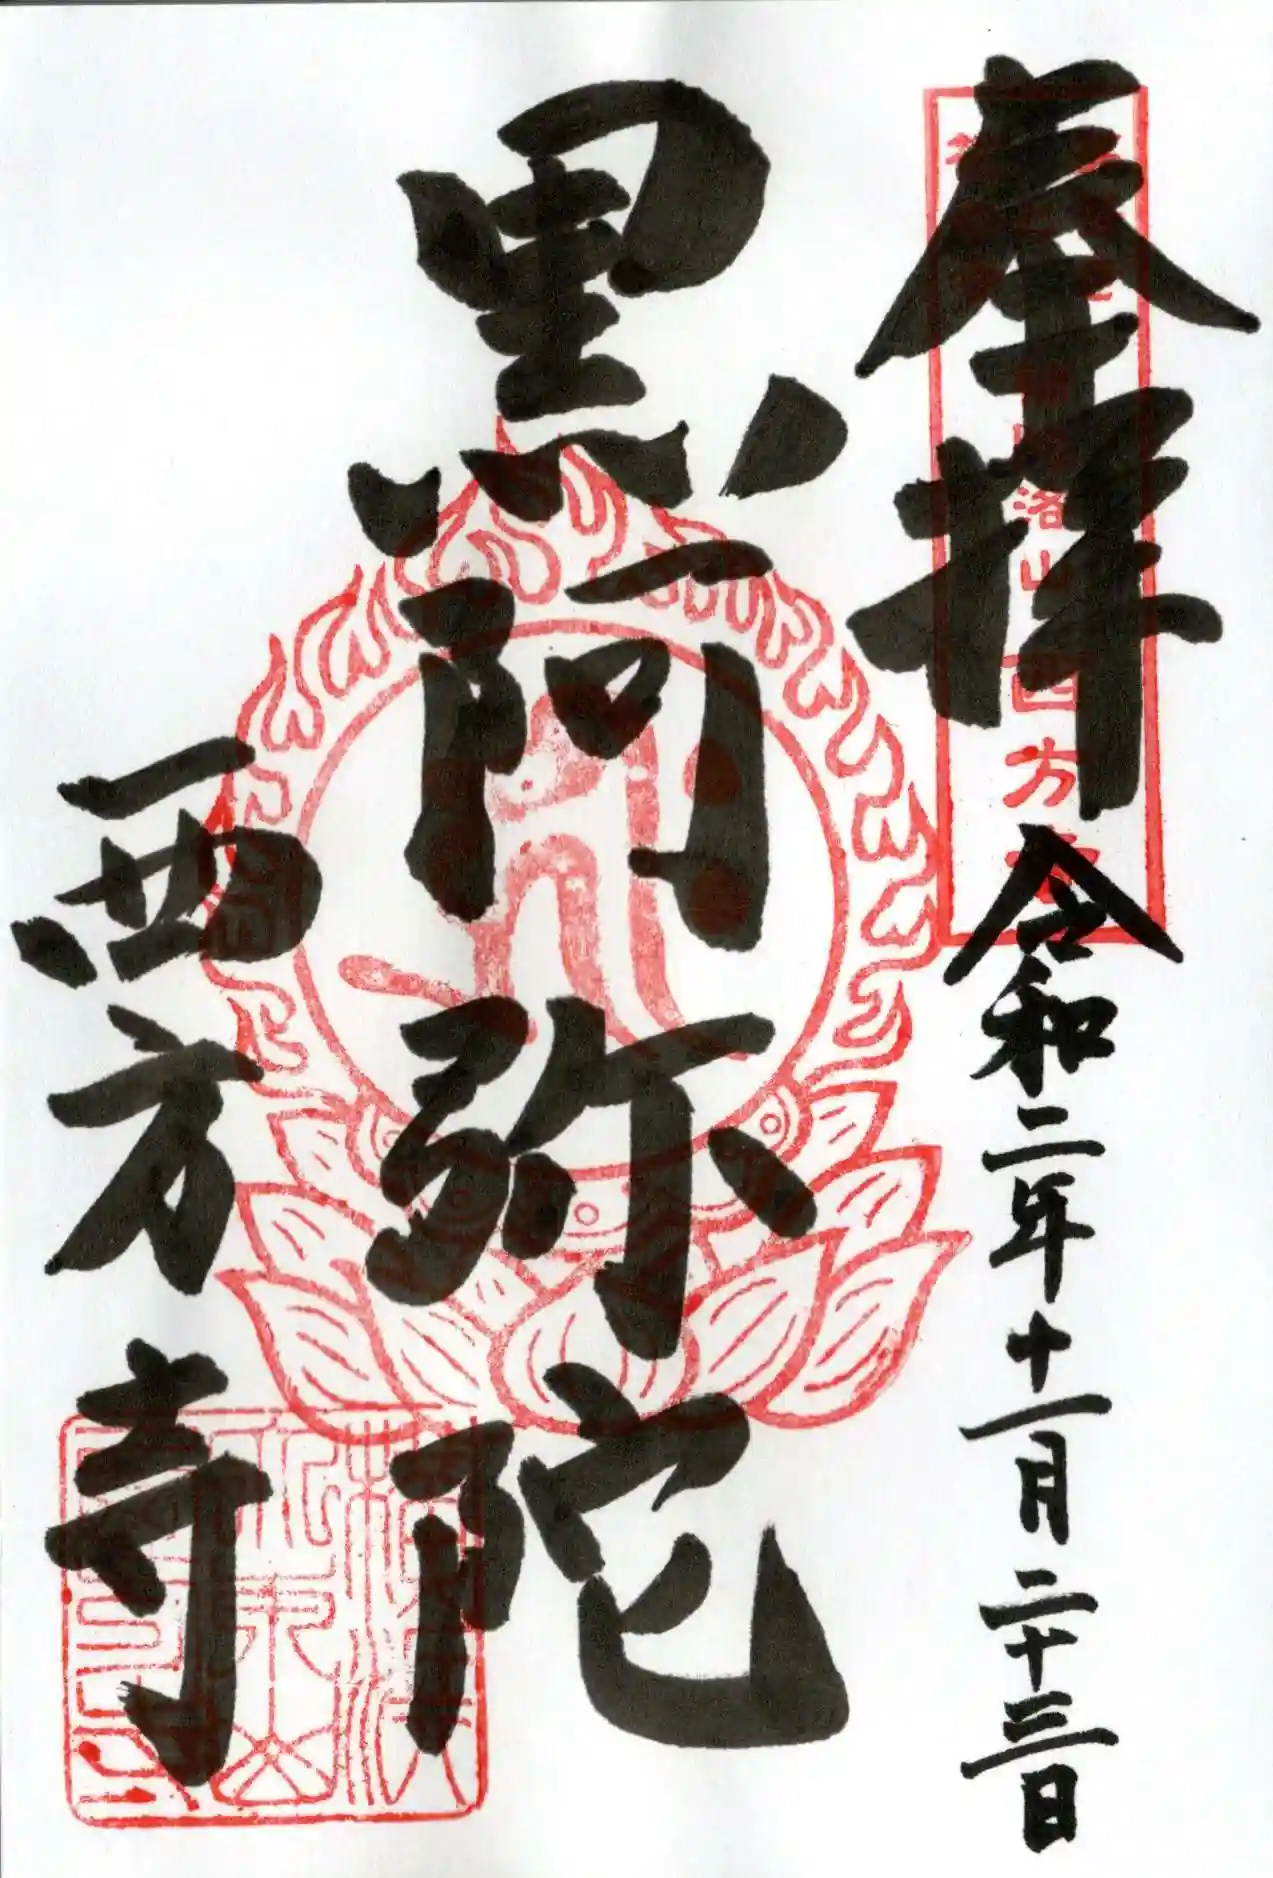 奉拝
令和二年十一月二十三日
黒阿弥陀
西方寺
洛山
西方寺